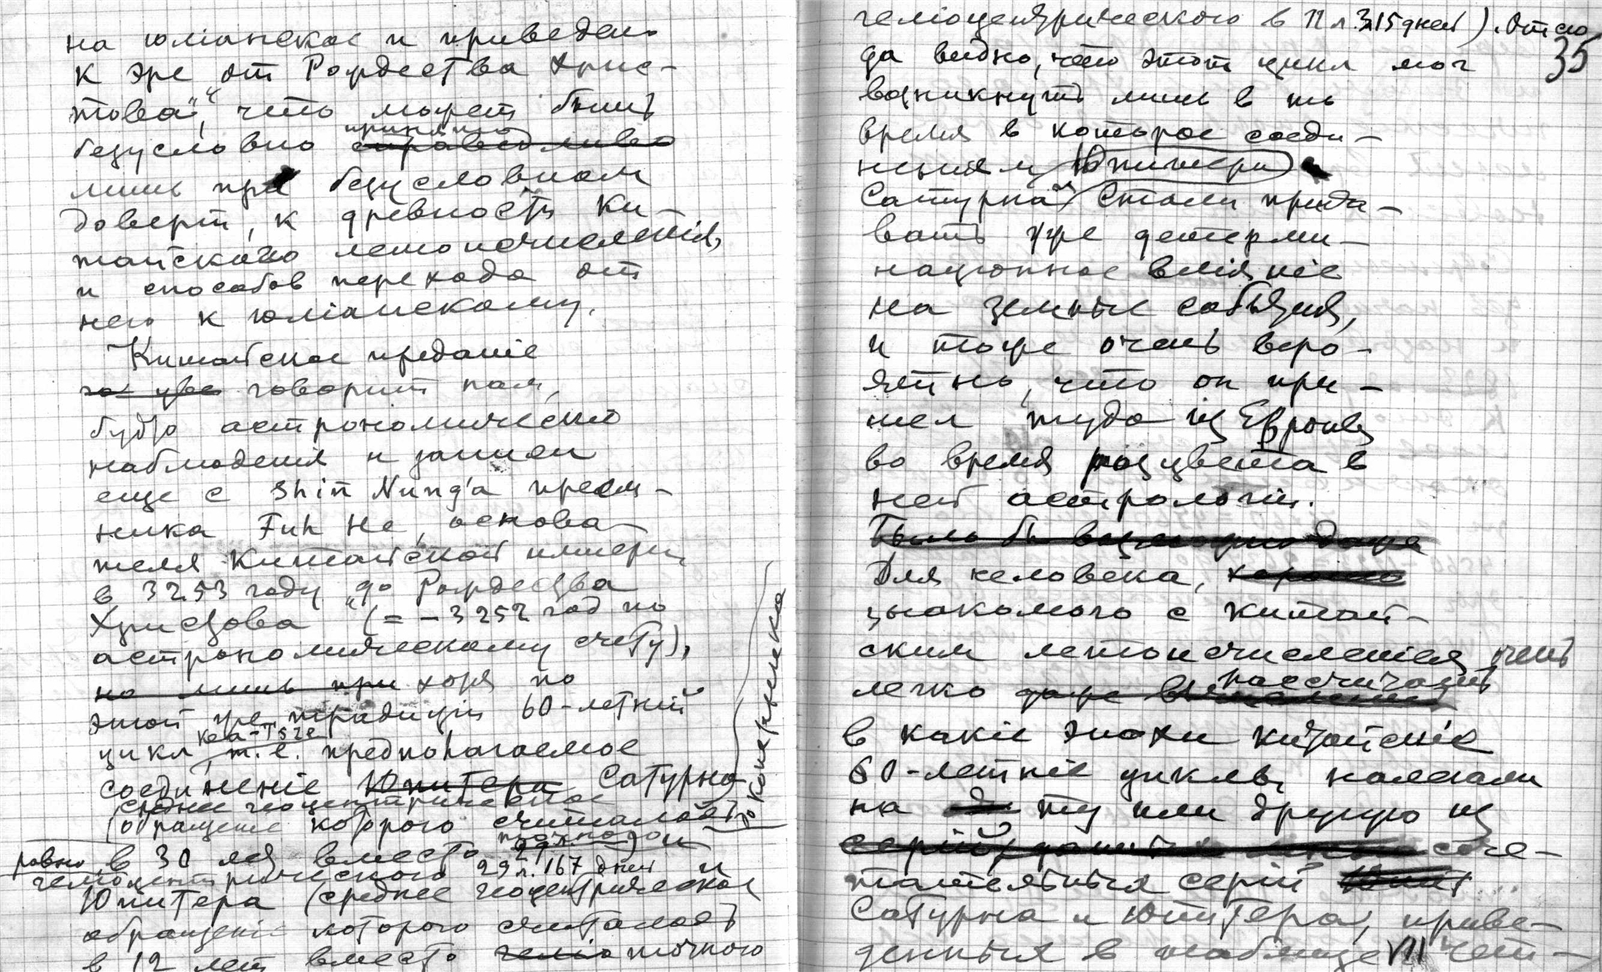 на юлианское и приведено
к эре от Рождества Хрис-
това", что может быть
принято
безусловно справедливо
лишь при безусловном
доверии к древности Ки-
тайского летоисчисленія,
и способов перехода от
него к юліанскому.
Китайское преданіе
говорит нам,
будто астрономическія
наблюденія и записи
еще с Shin Nung'a преем-
ника Fuh He, основа-
теля Китайской имперіи,
в 3253 году до Рождества
Христова (= -3252 год по
астрономическому счету),
но лишь при хотя по
этой же традиціи 60-летній
Kea-Tsze
цикл, т.е. предполагаемое
соединеніе Юпитера Сатурна
(среднее геоцентрическое
обращеніе которого считалось
равно в 30 лет вместо
геліоцентрического 29 л. 167 дней и
Юпитера (среднее геоцентрическое
обращеніе которого считалось
в 12 лет вместо точного
до Коперника
35
геліоцентрического в 11 л. 315 дней). Отсю
да видно, что этот цикл мог
возникнуть лишь в то
время в которое соеди-
неніям Юпитера
Сатурна стали прида-
вать уже детерми-
націонное вліяніе
на земные событія,
и тоже очень веро-
ятно, что он при-
шел туда из Европы
во время расцвета в
ней астрологіи.
Было бы возможно даже
Для человека, хорошо
знакомого с китай-
ским летоисчисленіем, очень
рассчитать
легко даже
в какіе эпохи китайскіе
60-летніе циклы попадали
на ту или другую из
соче-
тательных серій
Сатурна и Юпитера, приве-
денных в таблице VII чет-